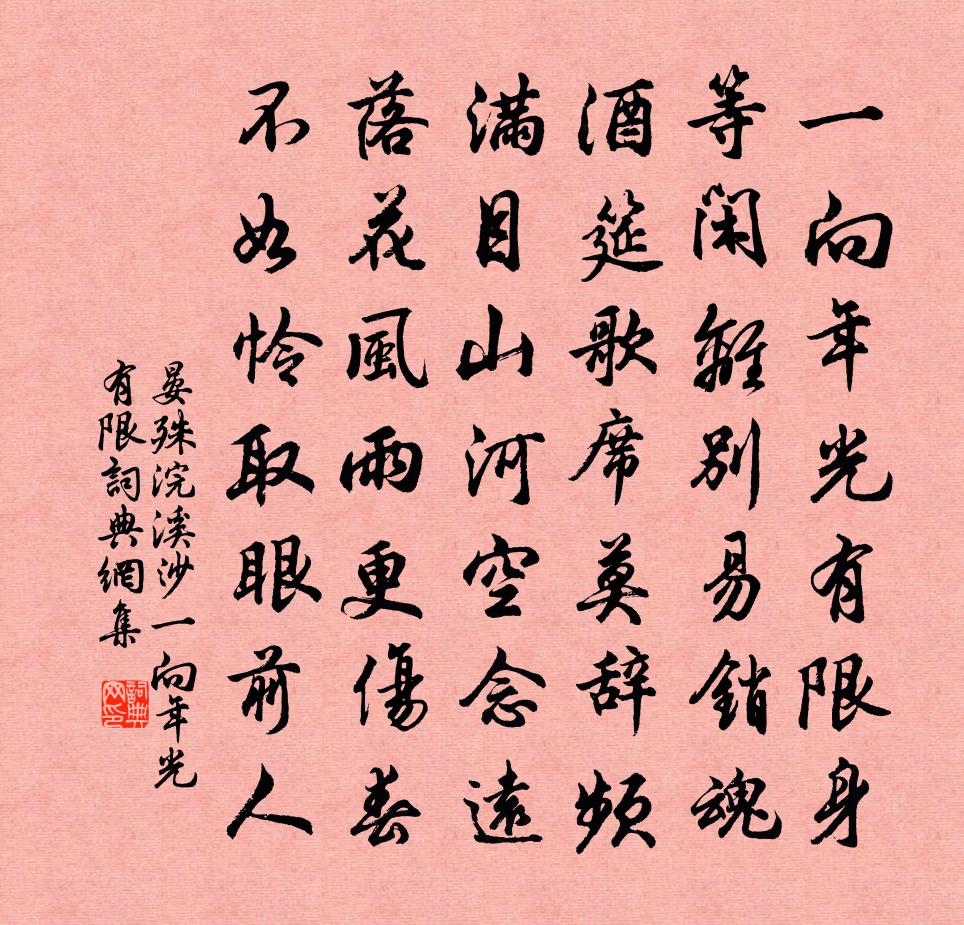 一向年光有限身
等閑離別易銷魂
酒筵歌席莫辞頻
滿目山河空念遠
落花風雨更傷春
不如怜取眼前人
晏殊浣溪沙一向年光
有限詞典網集
詞典网印